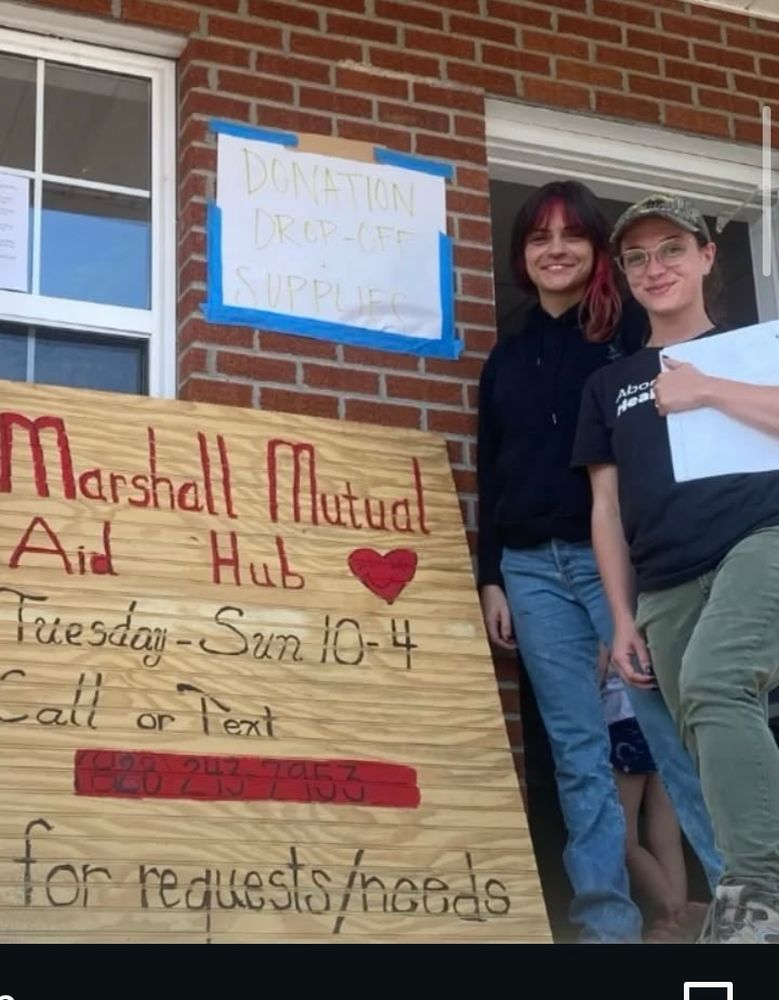 DONATION
DROP-OFF
SUPPLIES
Marshall Mutual
Aid Hub
Tuesday-Sun 10-4
Call or Text
(828) 243-7953
for requests/needs